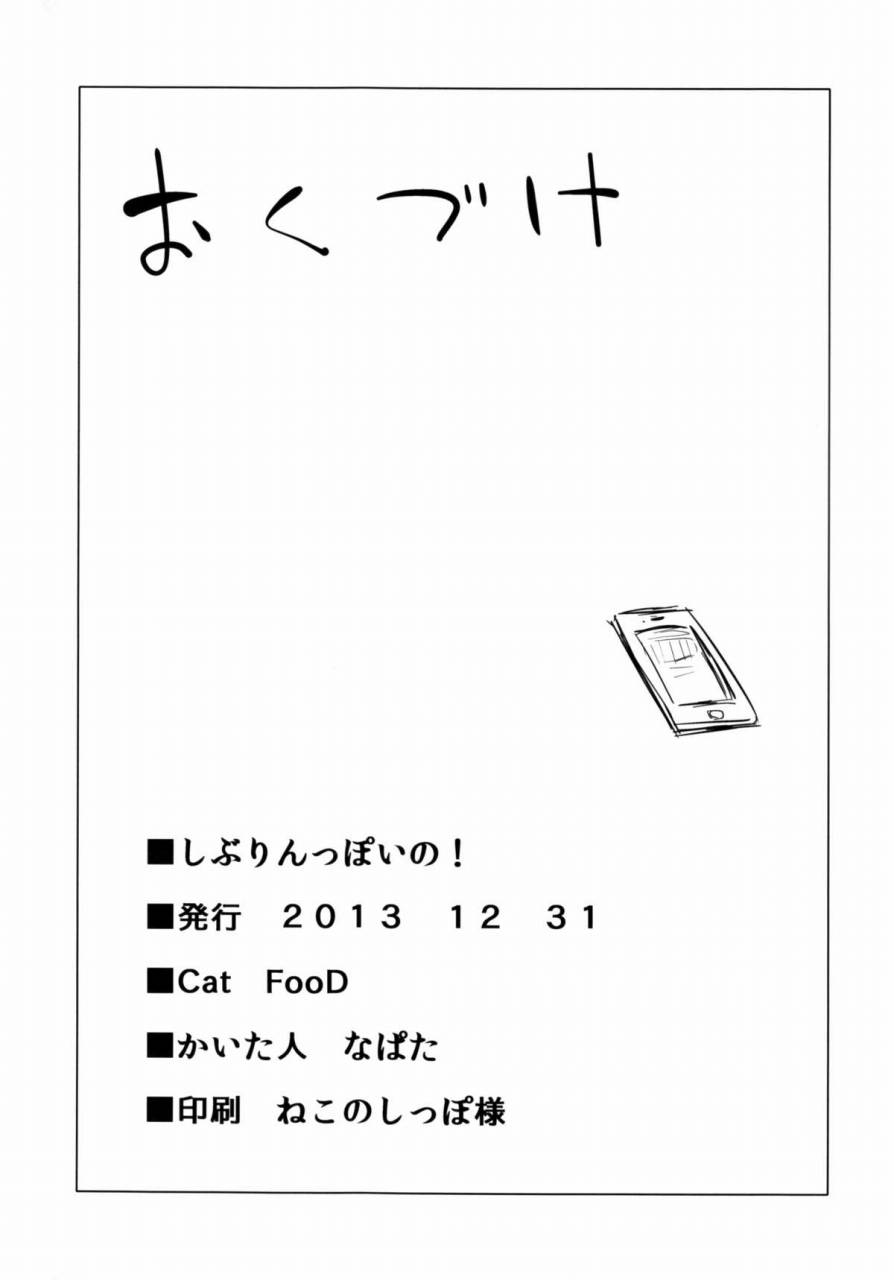 おくづけ
■しぶりんっぽいの！
■発行　２０１３　１２　３１
■Cat　FooD
■かいた人　なぱた
■印刷　ねこのしっぽ様